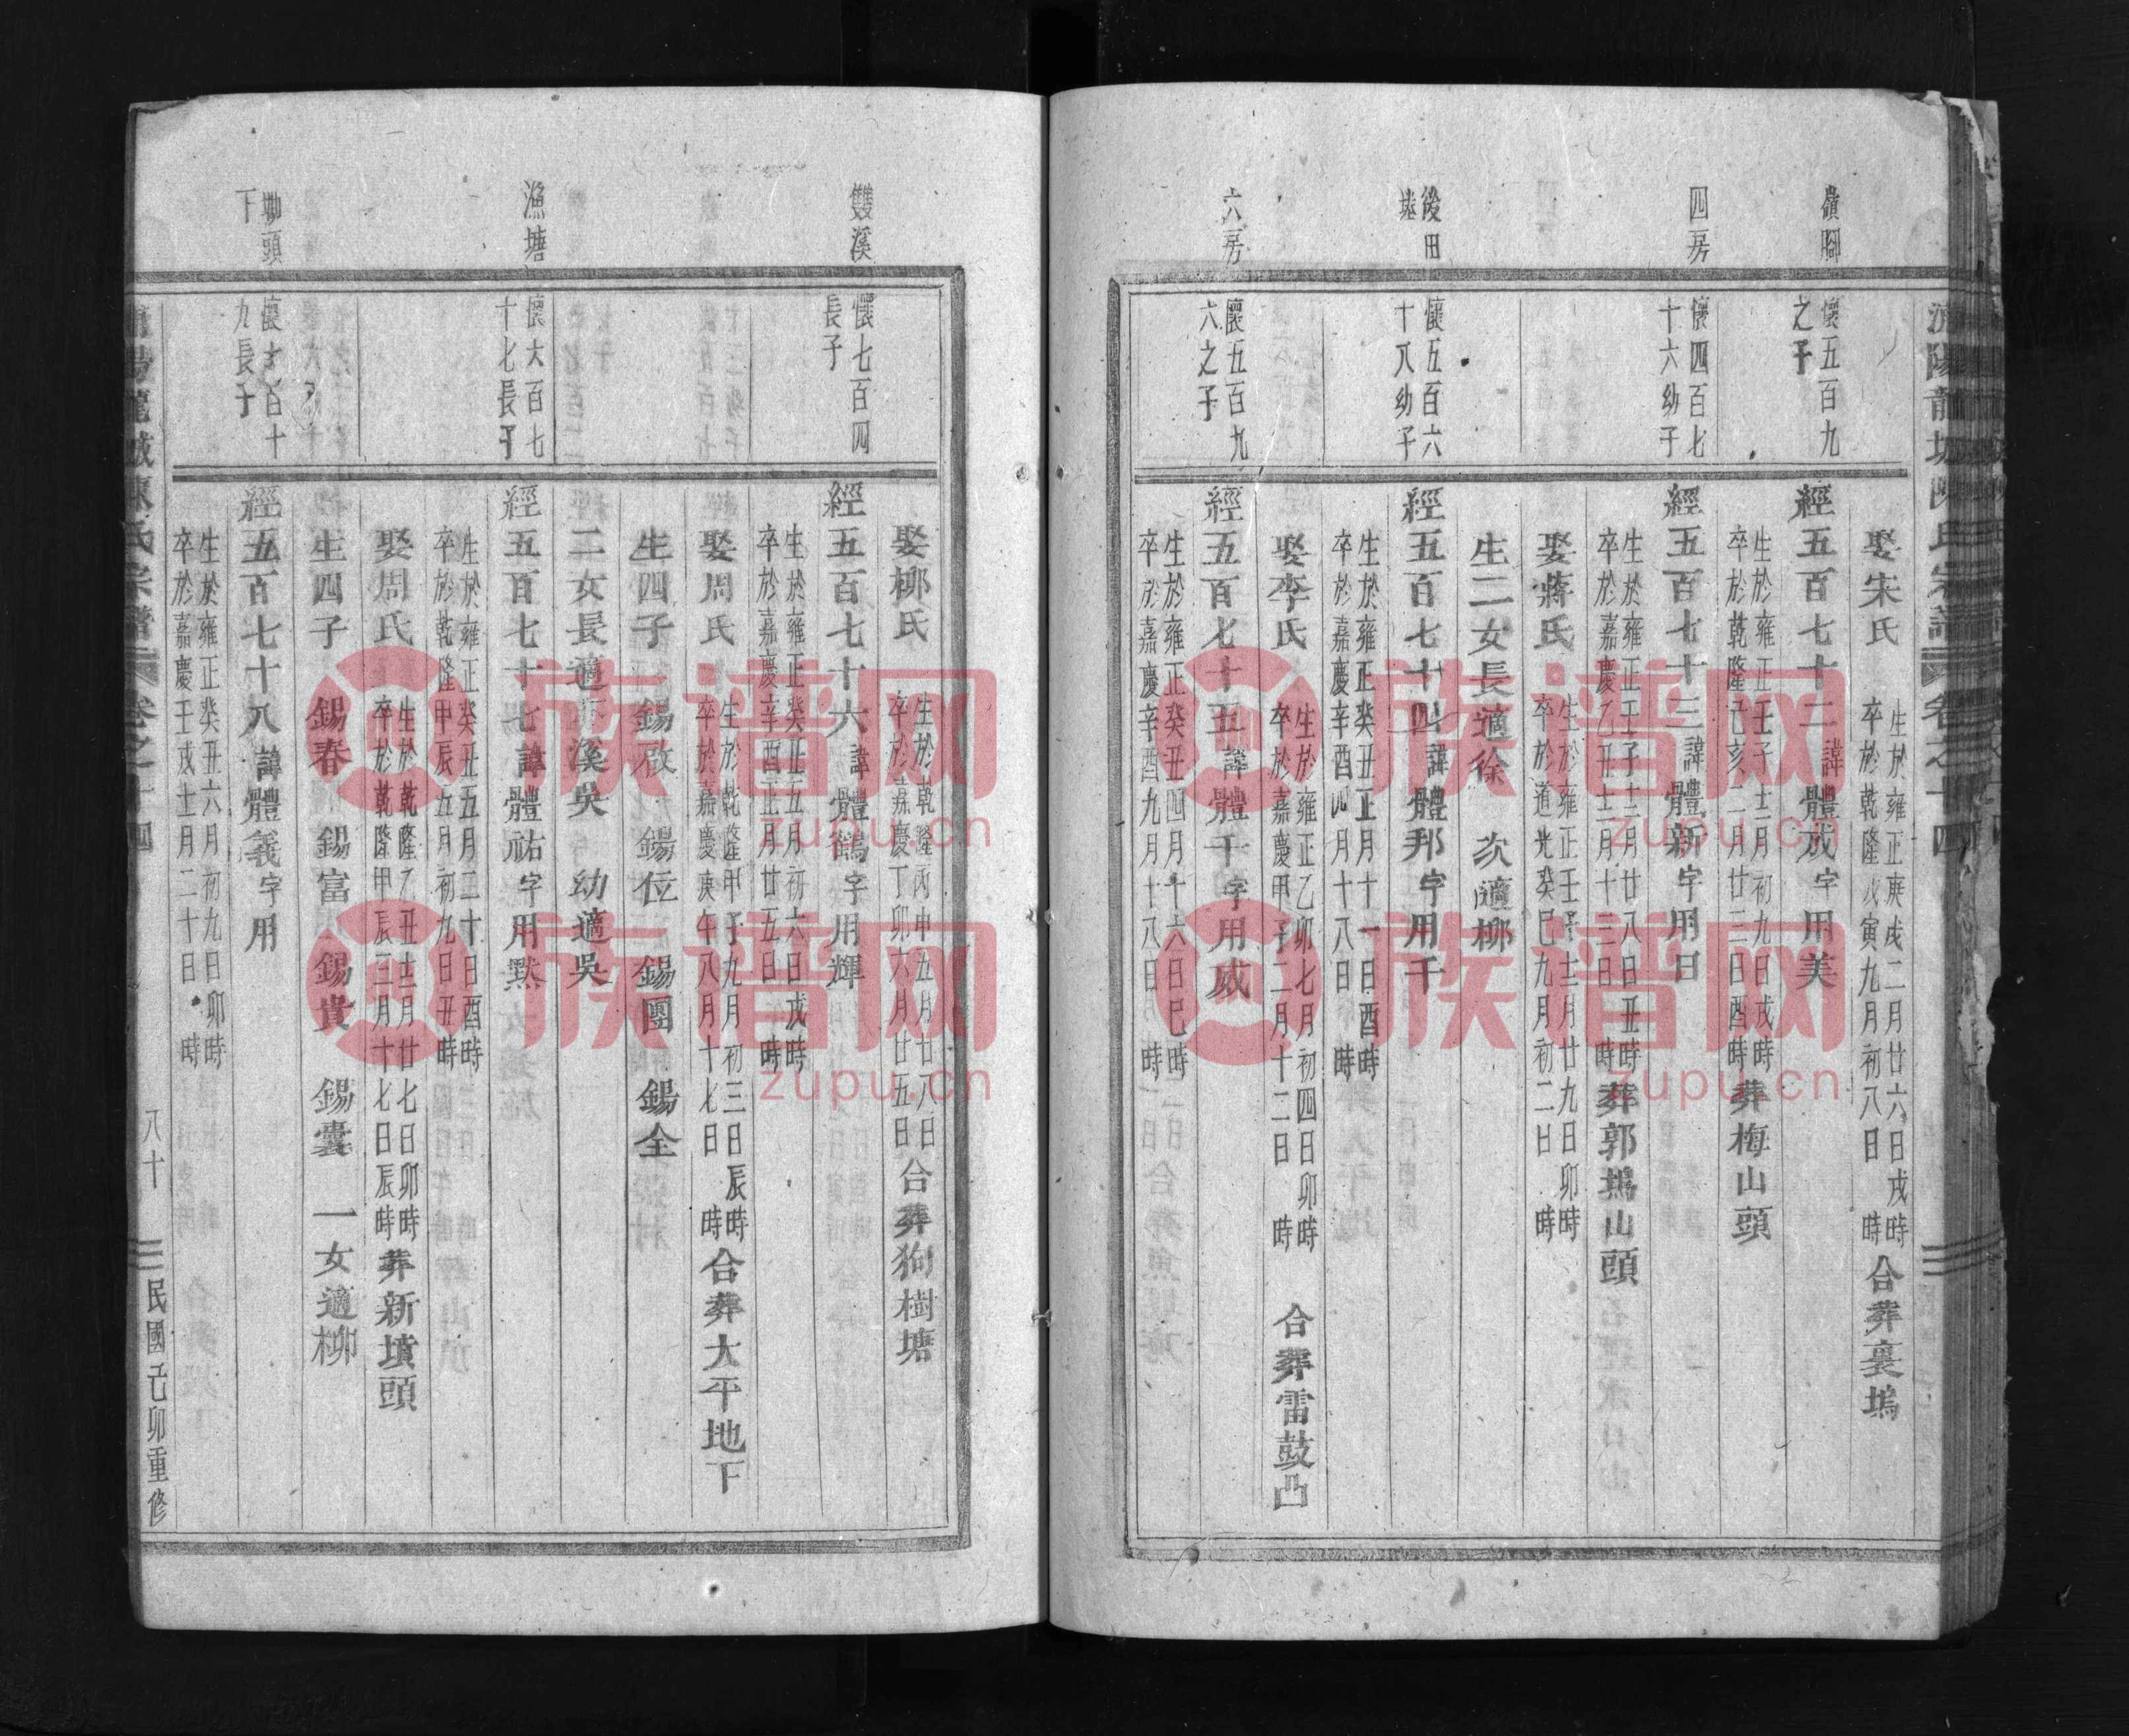 陽龍城陳氏宗譜 卷之十四
娶朱氏
生於雍正庚戌二月廿六日戌時
卒於乾隆戊寅九月初八日 時
合葬裏塢
嶺腳
懷五百九
之子
經五百七十二諱體成字用美
生於雍正壬子十二月初九日戌時
卒於乾隆己亥二月廿三日酉時
葬梅山頭
四房
懷四百七
十六幼子
經五百七十三諱體新字用日
生於雍正壬子十二月廿八日丑時
卒於嘉慶乙丑十二月十三日 時
葬郭塢山頭
娶蔣氏
生於雍正壬子十二月廿九日卯時
卒於道光癸巳九月初二日 時
生二女長適徐 次適柳
後田
懷五百六
十八幼子
經五百七十四諱體邦字用千
生於雍正癸丑正月十一日酉時
卒於嘉慶辛酉四月十八日 時
娶李氏
生於雍正乙卯七月初四日卯時
卒於嘉慶甲子二月十二日 時
合葬雷鼓凸
六房
懷五百九
六之子
經五百七十五諱體千字用威
生於雍正癸丑四月十六日巳時
卒於嘉慶辛酉九月十八日 時
娶柳氏
生於乾隆丙申五月廿八日
卒於嘉慶丁卯六月廿五日
合葬狗樹塘
雙溪
懷七百四
長子
經五百七十六諱體鶴字用輝
生於雍正癸丑五月初六日戌時
卒於嘉慶辛酉正月廿五日 時
娶周氏
生於乾隆甲子九月初三日辰時
卒於嘉慶庚午八月十七日 時
合葬大平地下
生四子 錫啟 錫位 錫團 錫全
二女長適溪吳 幼適吳
漁塘
懷六百七
十七長子
經五百七十七諱體祐字用默
生於雍正癸丑五月二十日酉時
卒於乾隆甲辰五月初九日丑時
娶周氏
生於乾隆乙丑十二月廿七日卯時
卒於乾隆甲辰三月十七日辰時
葬新墳頭
生四子 錫春 錫富 錫貴 錫囊 一女適柳
塘頭
下
懷七百十
九長子
經五百七十八諱體義字用
生於雍正癸丑六月初九日卯時
卒於嘉慶壬戌十二月二十日 時
龍城陳氏宗譜 卷之十四
八十
民國己卯重修
族谱网
zupu.cn
族谱网
zupu.cn
族谱网
zupu.cn
族谱网
zupu.cn